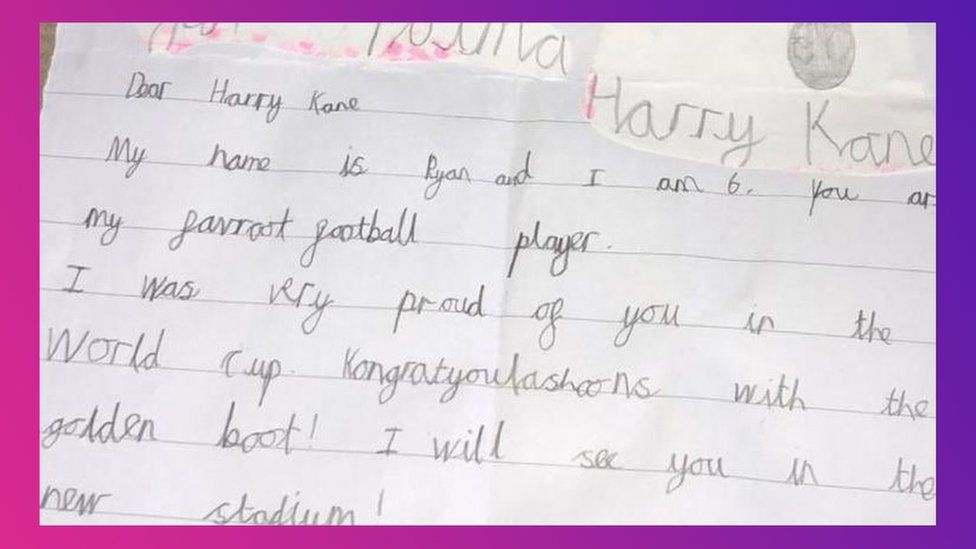 Dear Harry Kane
Harry Kane
My name is Ryan and I am 6. You ar
my favroot football player.
I was very proud of you in the
World Cup. Kongratyoulashoons with the
golden boot! I will see you in the
new stadium!